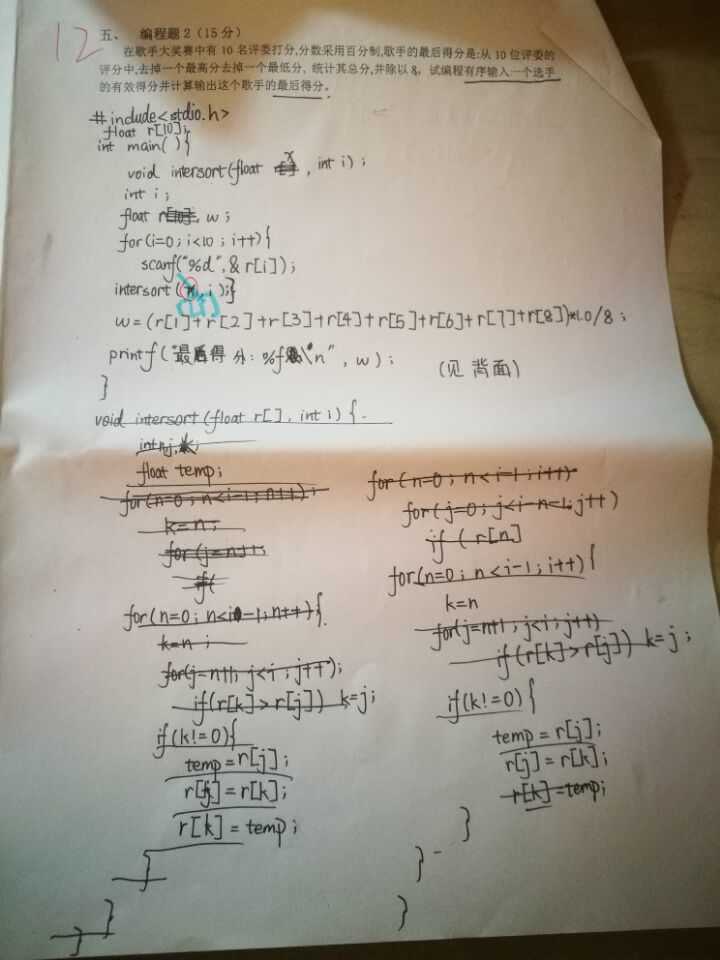 12
五、 编程题2（15分）
在歌手大奖赛中有10名评委打分,分数采用百分制,歌手的最后得分是:从10位评委的
评分中,去掉一个最高分去掉一个最低分, 统计其总分,并除以8, 试编程有序输入一个选手
的有效得分并计算输出这个歌手的最后得分。
#include<stdio.h>
float r[10];
int main( ){
void intersort(float x, int i);
int i;
float w;
for(i=0; i<10; i++){
scanf("%d",&r[i]);
intersort( , i);}
w=(r[1]+r[2]+r[3]+r[4]+r[5]+r[6]+r[7]+r[8])*1.0/8;
printf("最后得分: %f\n", w);
(见 背面)
}
void intersort(float r[], int i){
int n,j,
float temp;
for(n=0; n<i-1; n++);
k=n;
for(j=n+1;
if(
for(n=0; n<i-1; n++){
k=n;
for(j=n+1; j<i; j++);
if(r[k]>r[j]) k=j;
if(k!=0){
temp=r[j];
r[j]=r[k];
r[k]=temp;
}
}
}
for(n=0; n<i-1; i++)
for(j=0; j<i-n-1; j++)
if(r[n]
for(n=0; n<i-1; i++){
k=n
for(j=n+1; j<i; j++)
if(r[k]>r[j]) k=j;
if(k!=0){
temp=r[j];
r[j]=r[k];
r[k]=temp;
}
}
}